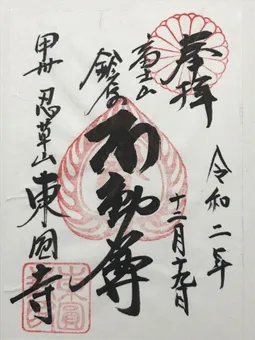 奉拝
令和二年
十二月十九日
富士山
鈴原
不動尊
甲州 忍草山 東圓寺